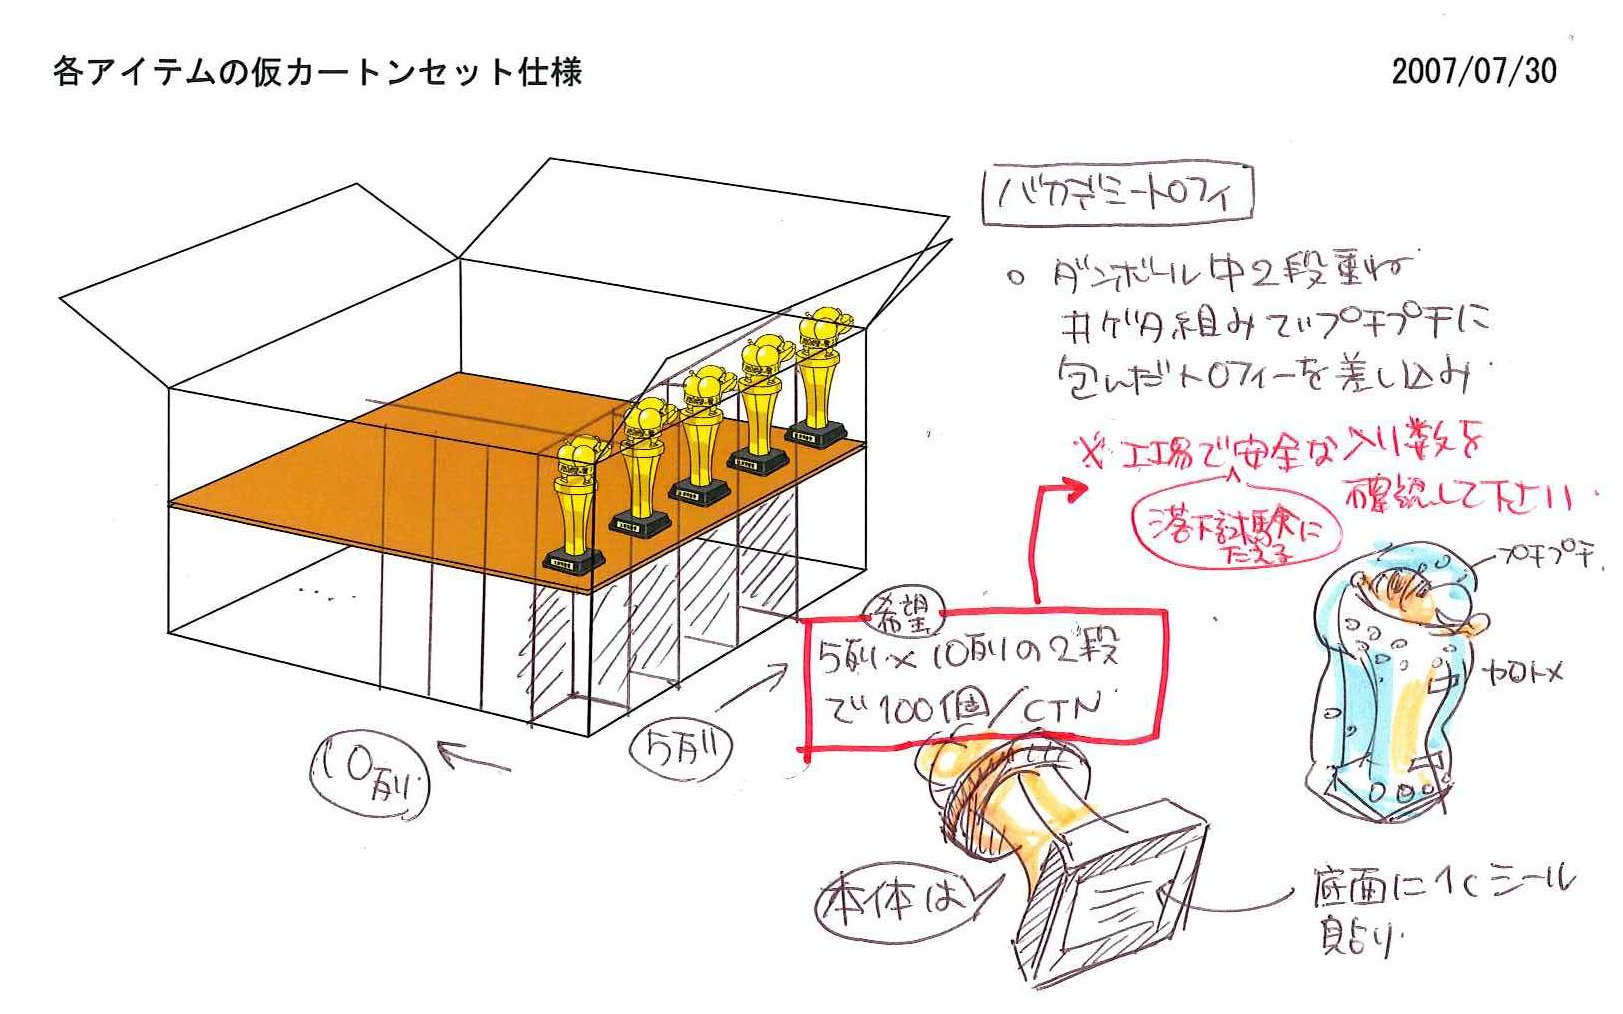 各アイテムの仮カートンセット仕様
2007/07/30
バカデミートロフィ
○ ダンボール中2段重ね
井ゲタ組みでプチプチに
包んだトロフィーを差し込み
※工場で安全な入り数を
確認して下さい
落下試験に
たえる
プチプチ
セロトメ
希望
5列×10列の2段
で100個/CTN
10列
5列
本体は
底面に1cシール
貼り